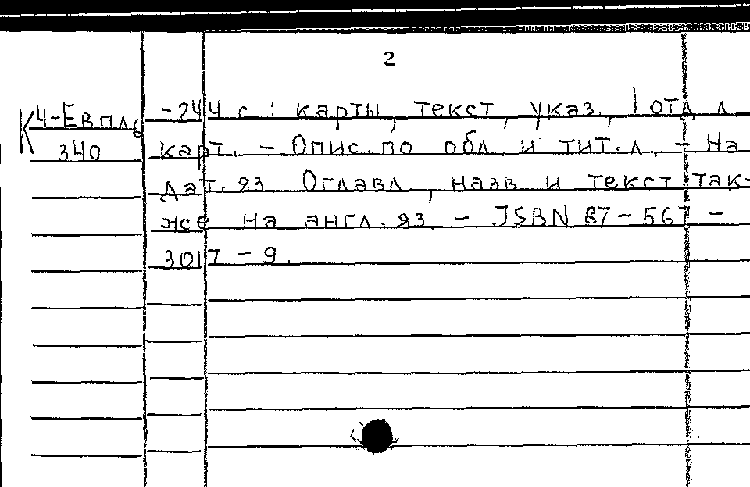 2
К4-Евпль
340
-244 с : карты, текст, указ., 1 отд. л.
карт. - Опис. по обл. и тит. л. - На
дат. яз. Оглавл., назв. и текст так-
же на англ. яз. - ISBN 87-567-
3017-9.